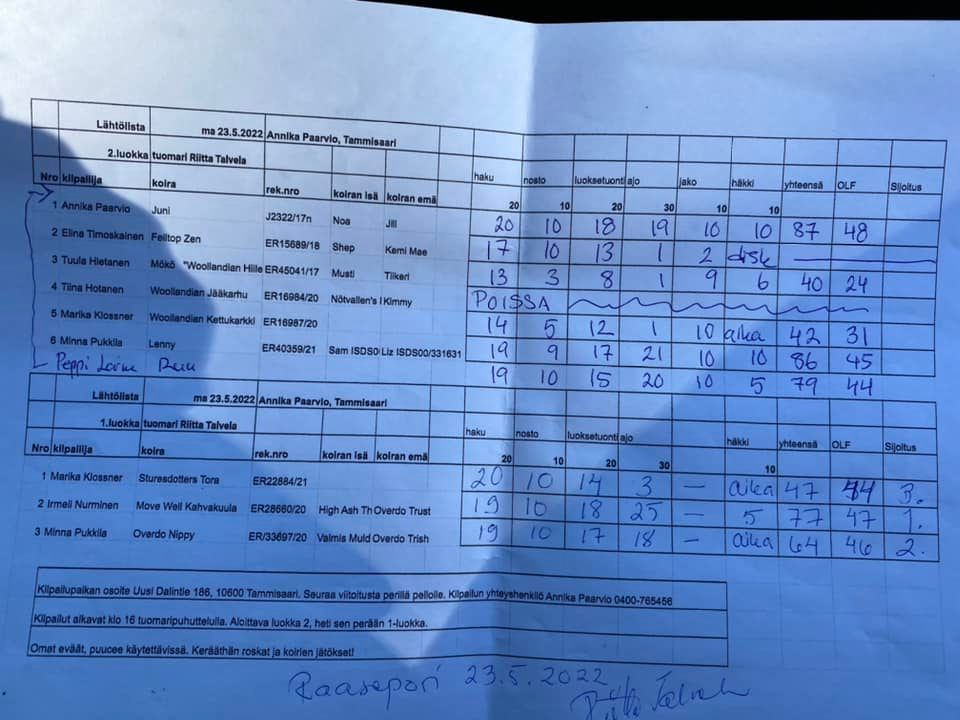 Lähtölista ma 23.5.2022 Annika Paarvio, Tammisaari
2.luokka tuomari Riitta Talvela haku nosto luoksetuonti ajo jako häkki yhteensä OLF Sijoitus
Nro kilpailija koira rek.nro koiran isä koiran emä 20 10 20 30 10 10
1 Annika Paarvio Juni J2322/17n Noa Jill 20 10 18 19 10 10 87 48
2 Elina Timoskainen Felltop Zen ER15689/18 Shep Kemi Mae 17 10 13 1 2 disk
3 Tuula Hietanen Mökö "Woollandian Hille ER45041/17 Musti Tiikeri 13 3 8 1 9 6 40 24
4 Tiina Hotanen Woollandian Jääkarhu ER16984/20 Nötvallen's Kimmy POISSA
5 Marika Klossner Woollandian Kettukarkki ER16987/20 14 5 12 1 10 aika 42 31
6 Minna Pukkila Lenny ER40359/21 Sam ISDS0 Liz ISDS00/331631 19 9 17 21 10 10 86 45
Peppi 19 10 15 20 10 5 79 44
Lähtölista ma 23.5.2022 Annika Paarvio, Tammisaari
1.luokka tuomari Riitta Talvela haku nosto luoksetuonti ajo häkki yhteensä OLF Sijoitus
Nro kilpailija koira rek.nro koiran isä koiran emä 20 10 20 30 10
1 Marika Klossner Sturesdotters Tora ER22884/21 20 10 14 3 – aika 47 44 3.
2 Irmeli Nurminen Move Well Kahvakuula ER28660/20 High Ash Th Overdo Trust 19 10 18 25 – 5 77 47 1.
3 Minna Pukkila Overdo Nippy ER/33697/20 Valmis Muld Overdo Trish 19 10 17 18 – aika 64 46 2.
Kilpailupaikan osoite Uusi Dalintie 186, 10600 Tammisaari. Seuraa viitoitusta perillä pellolle. Kilpailun yhteyshenkilö Annika Paarvio 0400-765456
Kilpailut alkavat klo 16 tuomaripuhuttelulla. Aloittava luokka 2, heti sen perään 1-luokka.
Omat eväät, puucee käytettävissä. Kerääthän roskat ja koirien jätökset!
Raasepori 23.5.2022
Riitta Talvela